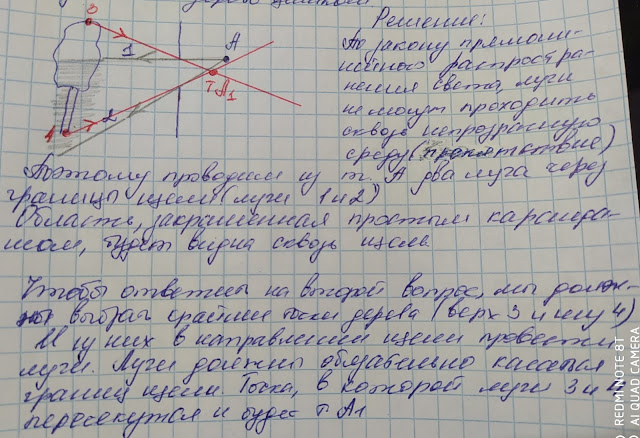 дерево целиком
Решение:
По закону прямоли-
нейного распростра-
нения света, лучи
не могут проходить
сквозь непрозрачную
среду (препятствие)
Поэтому проводим из т. А два луча через
границы щели (лучи 1 и 2)
Область, закрашенная простым каранда-
шом, будет видна сквозь щель
Чтобы ответить на второй вопрос, мы долж-
ны выбрать крайние точки дерева (верх 3 и низ 4)
И из них в направлении щели провести
лучи. Лучи должны обязательно касаться
границ щели Точка, в которой лучи 3 и 4
пересекутся и будет т А1
3
1
А
т А1
2
4
REDMI NOTE 8T
AI QUAD CAMERA